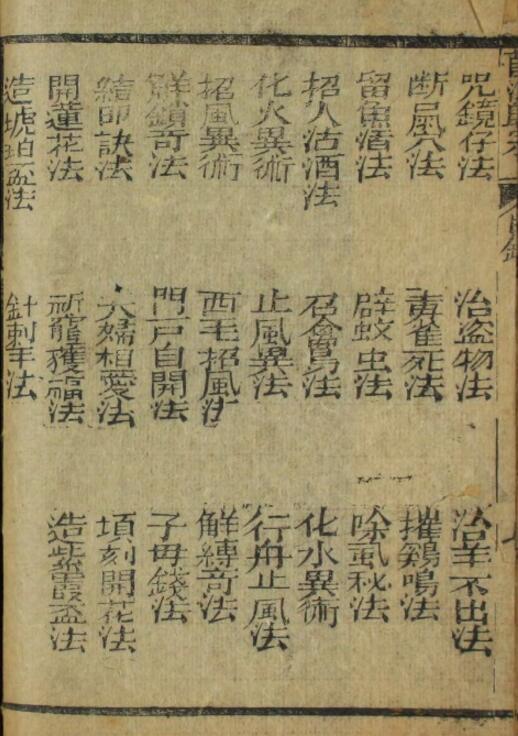 咒鏡仔法 治盗物法 治羊不出法
断風穴法 毒雀死法 摧鷄鳴法
留魚酒法 辟蚊虫法 除虱秘法
招人沽酒法 召禽法 化水異術
化火異術 止風異法 行舟止風法
招風異術 西毛招風法 解縛奇法
解鎖奇法 門戸自開法 子母錢法
結印訣法 夫婦相愛法 項刻開花法
開蓮花法 祈龍獲福法 造紫霞盃法
造琥珀盃法 針刺法